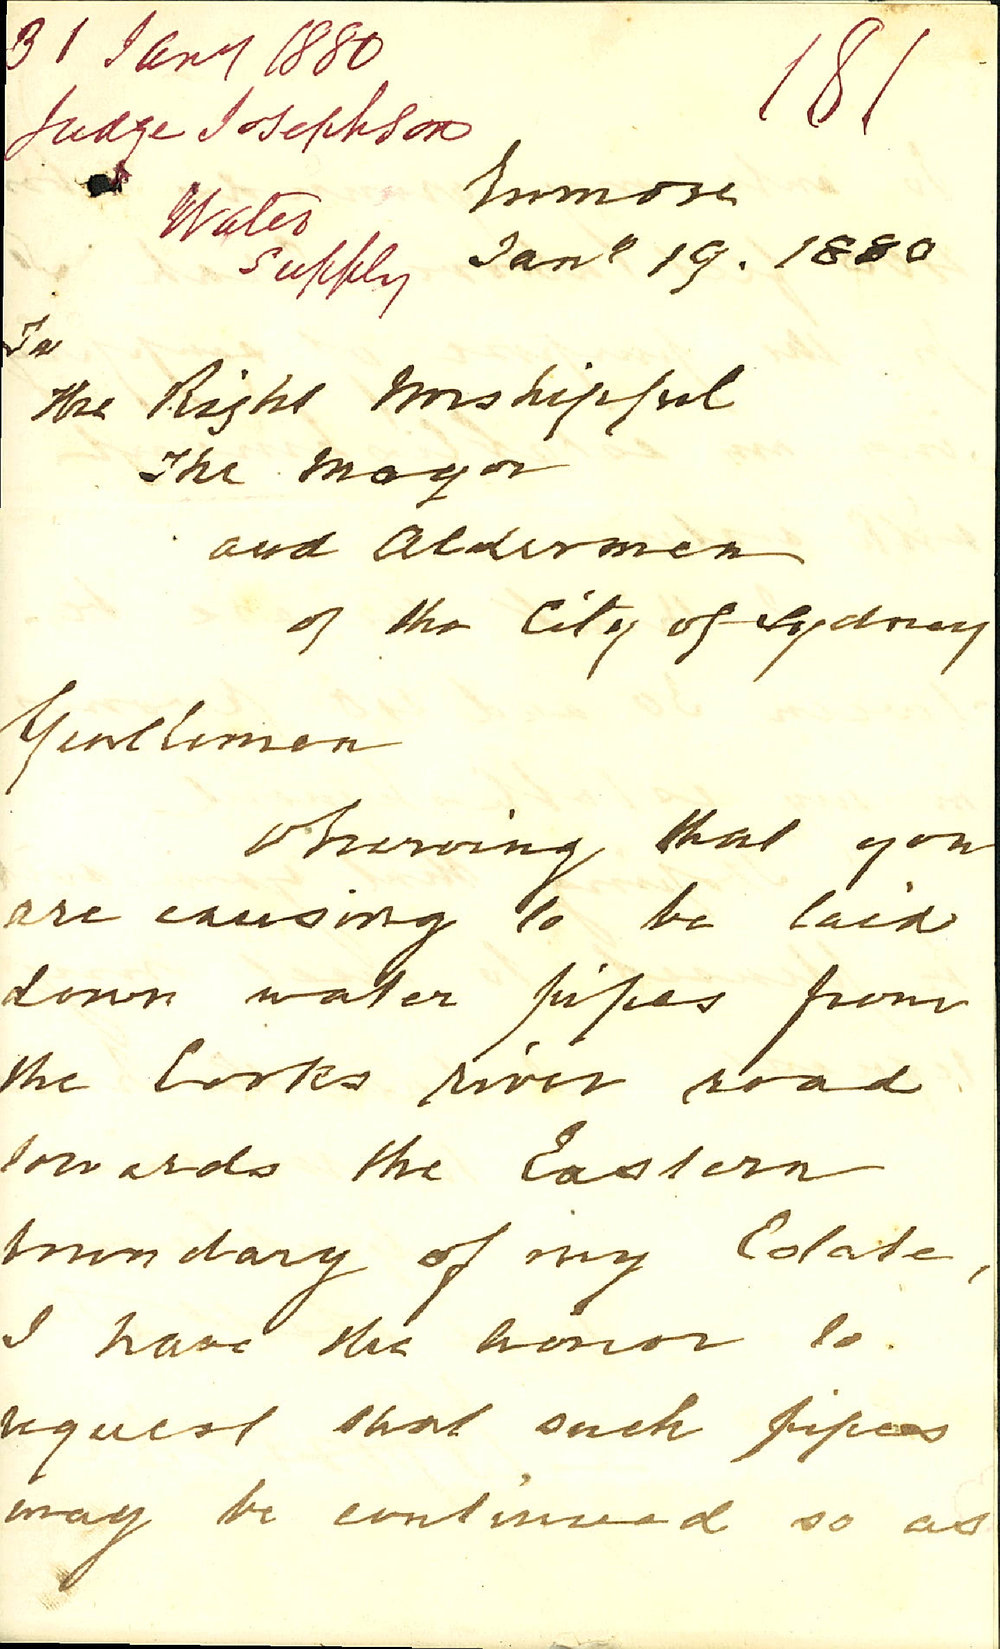 31 Jany 1880
181
Judge Josephson
Water
Supply
Enmore
Jany 19. 1880
To
the Right Worshipful
The Mayor
and Aldermen
of the City of Sydney
Gentlemen
Observing that you
are causing to be laid
down water pipes from
the Cooks river road
towards the Eastern
boundary of my Estate,
I have the honor to
request that such pipes
may be continued so as